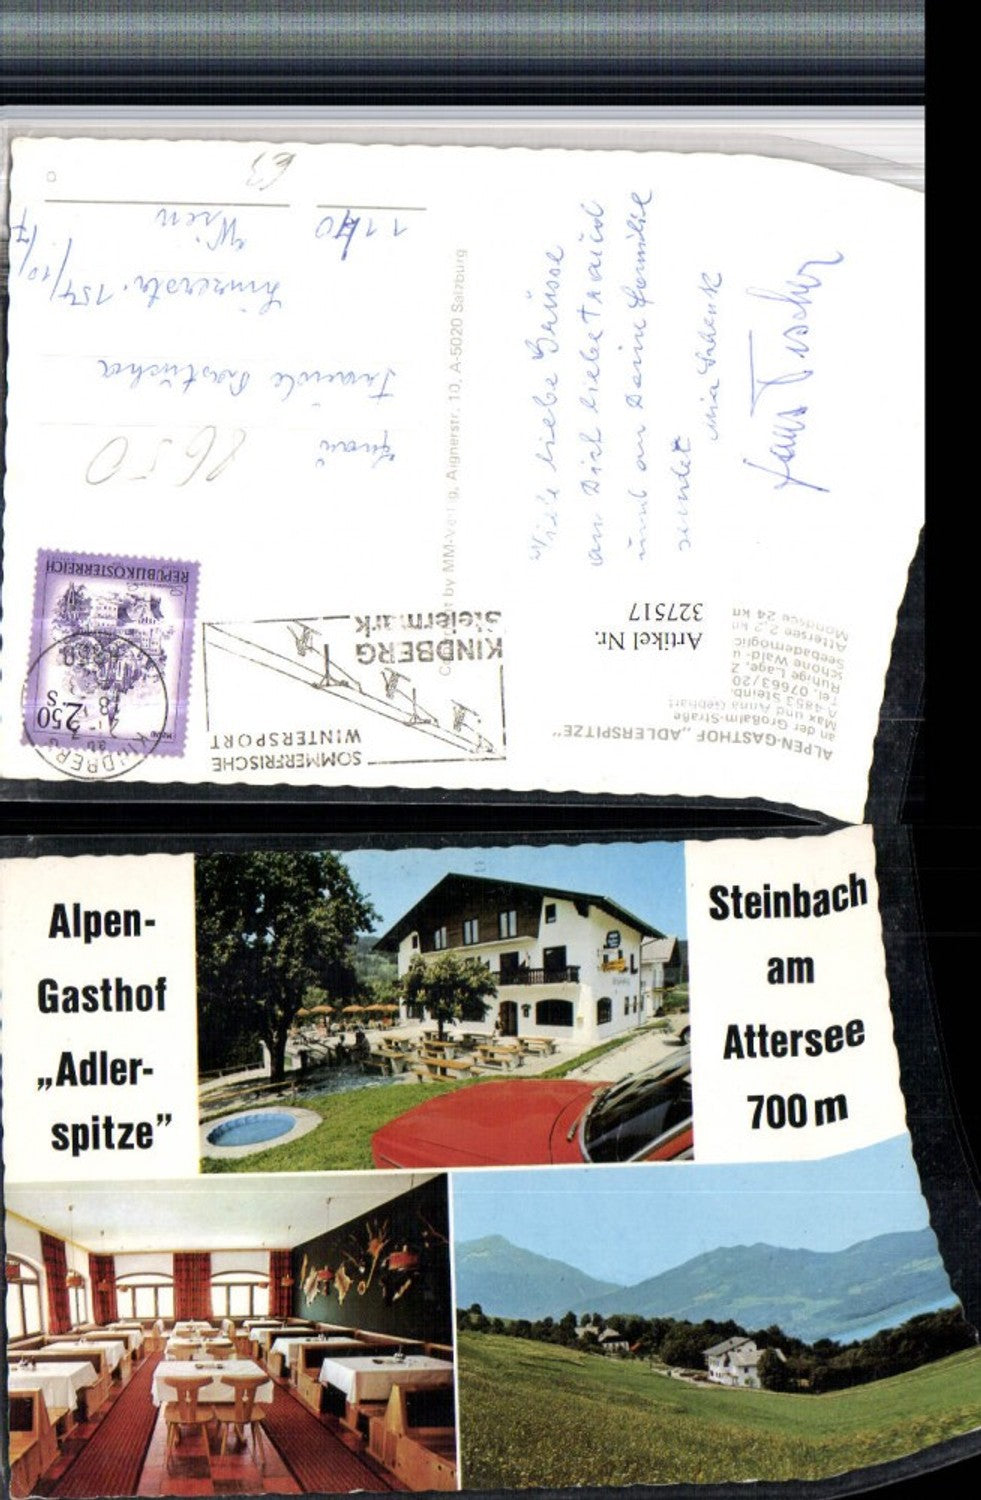 Alpen-
Gasthof
„Adler-
spitze”
Steinbach
am
Attersee
700 m
ALPEN-GASTHOF „ADLERSPITZE”
an der Großalm-Straße
Max und Anna Gebhart
A-4853 Steinb.
Tel. 07663/20
Ruhige Lage, 2
schöne Wald- u
Seebademöglic
Attersee 2,2 km
Mondsee 24 km
Artikel Nr.
327517
Viele liebe Grüsse
an Dich liebe Traudl
und an Deine Familie
sendet
by MM-Verlag, Aignerstr. 10, A-5020 Salzburg
SOMMERFRISCHE
WINTERSPORT
KINDBERG
Steiermark
KINDBERG
8650
REPUBLIK ÖSTERREICH
2.50 S
8650
Frau
Traude
Linzerstr. 154/10/7
1140 Wien
63